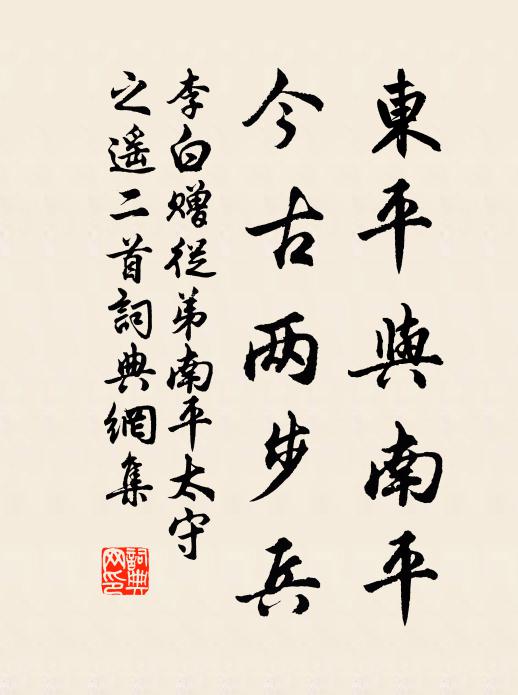 東平與南平
今古两步兵
李白赠從弟南平太守
之遥二首詞典網集
詞典
网印